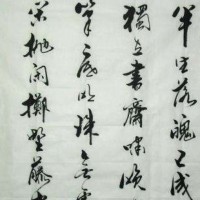 半生落魄已成
獨立書齋嘯晚
筆底明珠無處
閑拋閑擲野藤中